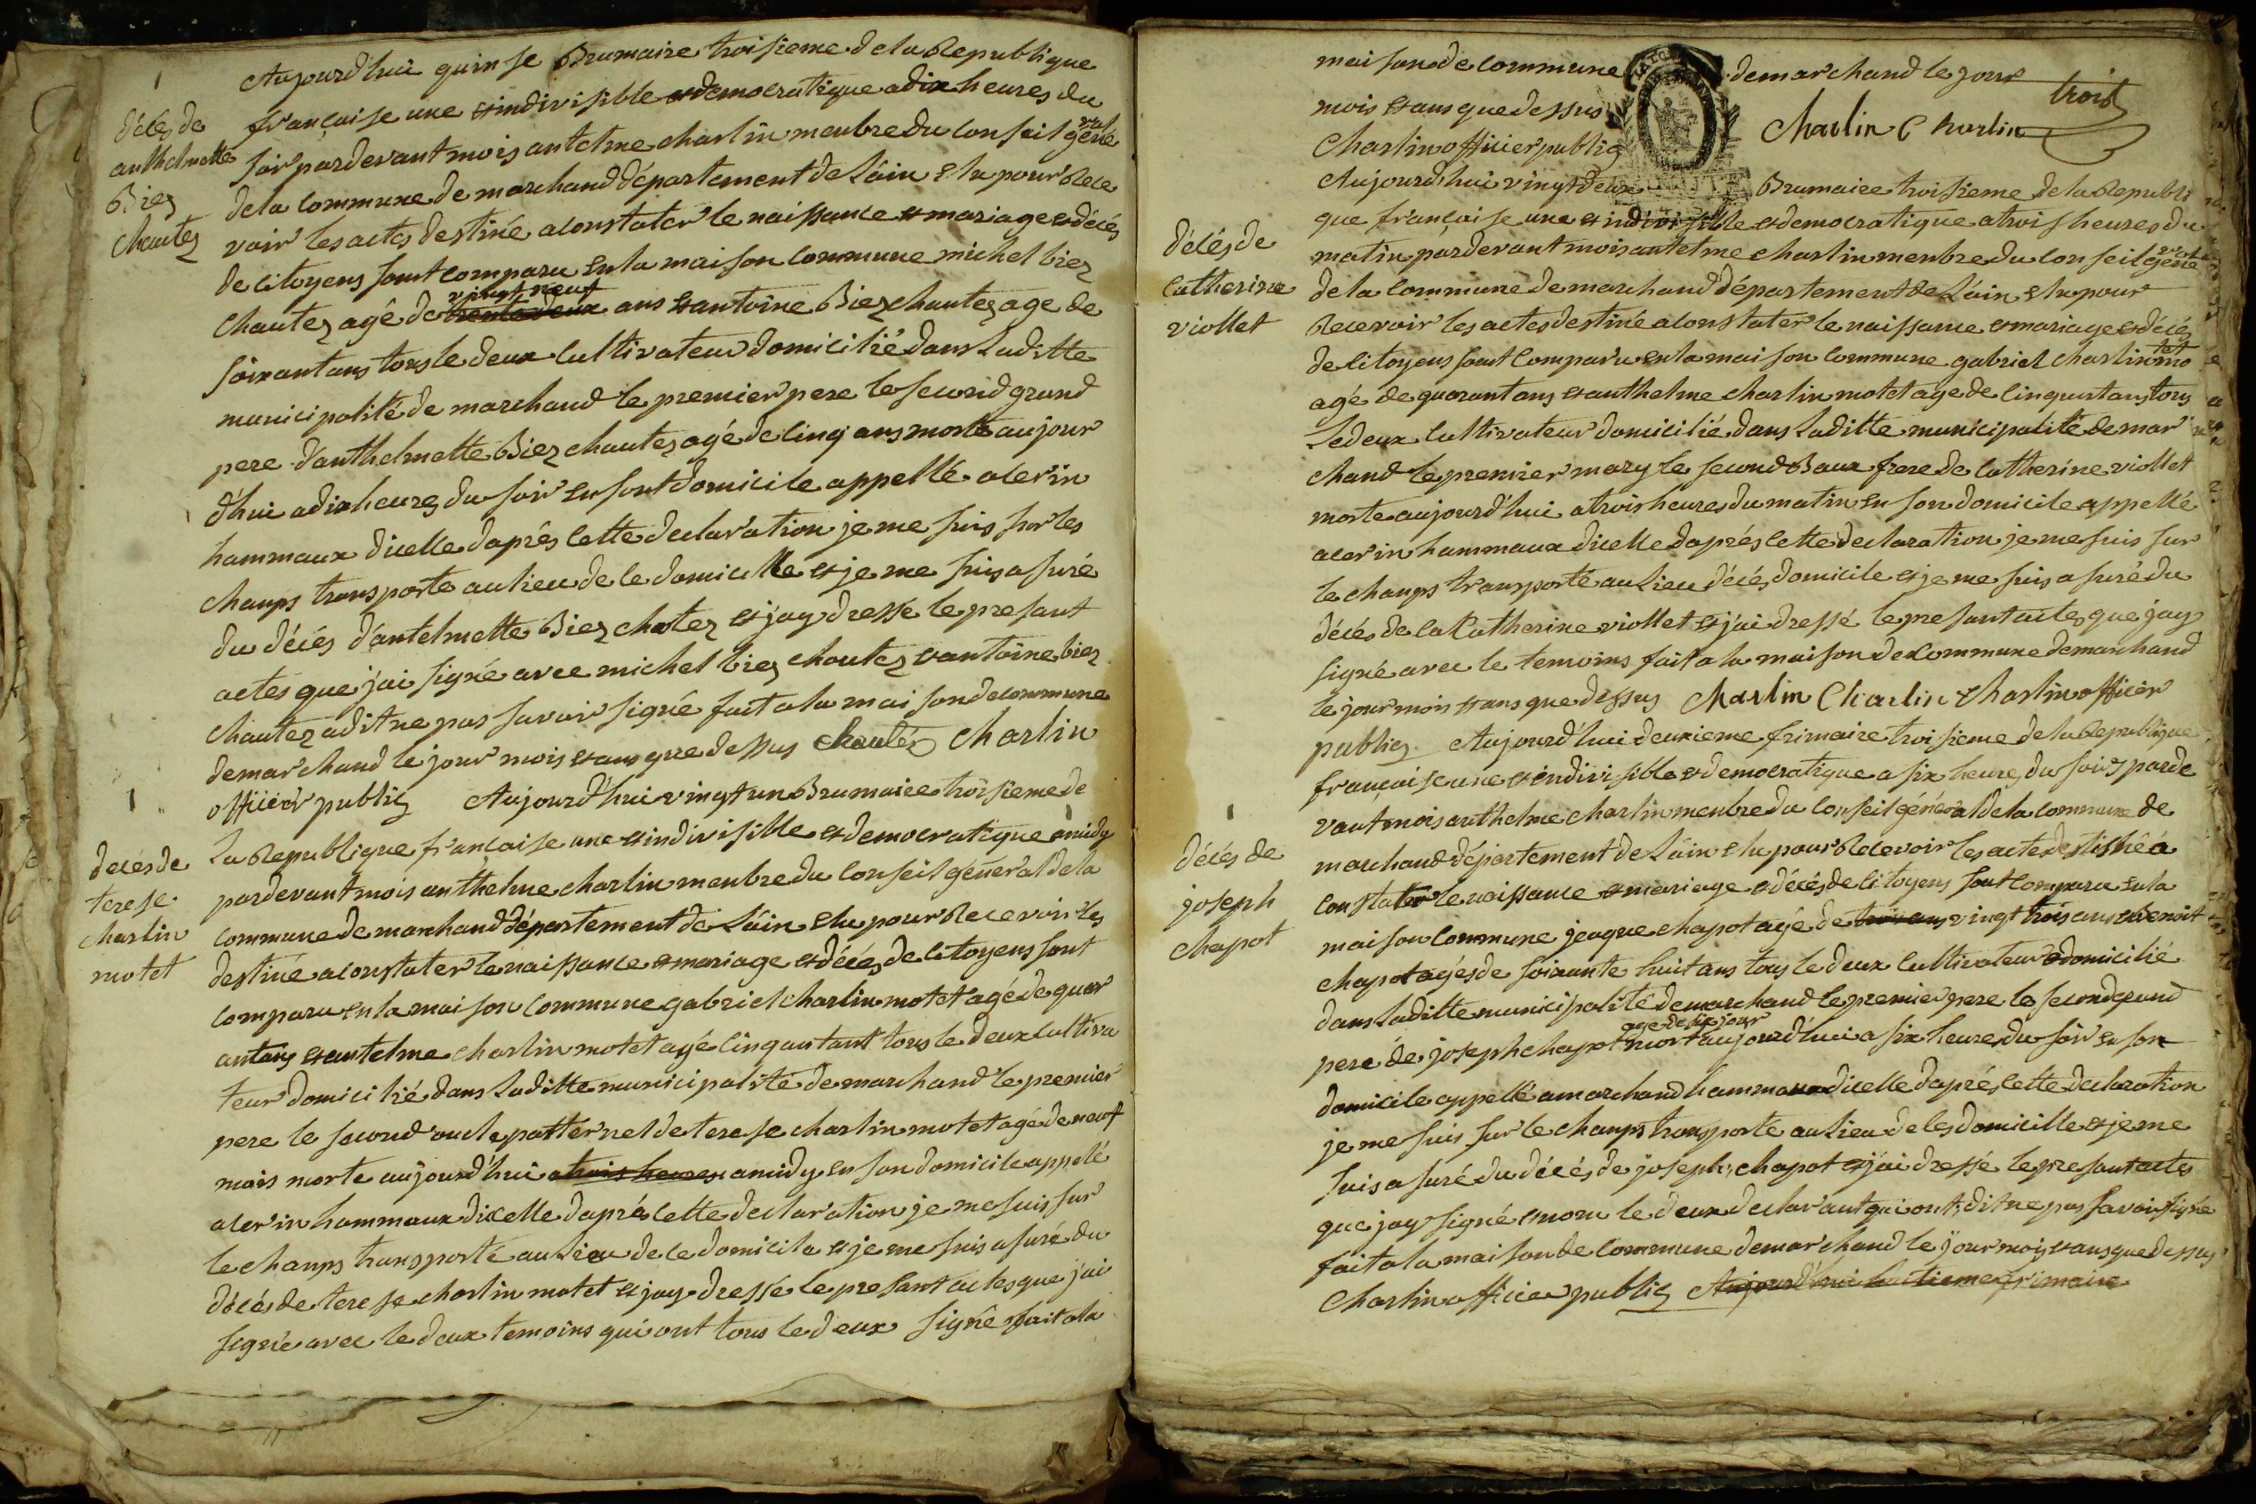 décès de
anthelmette
Biez
Chautez
Aujourdhui quinse Brumaire troisieme de la Republique
française une et indivisible et democratique a dix heures du
soir pardevant mois antelme charlin menbre du Conseil géné
ral
de la Commune de marchand département de Lain Elu pour Rece
voir les actes destiné a Constater le naissance et mariage et décés
de Citoyens sont Comparu En la maison Commune michel biez
vingt neuf
Chautez agé de trente deux ans et antoine Biez chautez age de
soixant ans tous le deux Cultivateur domicilié dans Laditte
municipalité de marchand le premier pere le second grand
pere d'anthelmette Biez chautez agé de Cinq ans morte aujour
d'hui a dix heures du soir En sont domicile appellé acerin
hammaux dicelle daprés Cette declaration je me suis sur les
champs transporté au lieu de le domicille et je me suis asuré
du décés d'antelmette Biez chatez et jay dressé le presant
actes que j'ai signé avec michel biez chautez et antoine biez
Chautez a dit ne pas savoir signé fait a la maison de commune
demarchand le jour mois et ans que dessus Chautéz Charlin
officier public Aujourd'hui vingt un Brumaire troisieme de
decés de
terese
charlin
motet
La Republique française une et indivisible et democratique amidy
pardevant mois anthelme charlin menbre du Conseil général de la
commune de marchand département de Lain Elu pour Recevoir les
destiné a Constater le naissance et mariage et décés de Citoyens sont
Comparu En la maison Commune gabriel charlin motet agé de quar
antans et antelme charlin motet agé Cinqantant tous le deux Cultiva
teur domicilié dans Laditte municipalité de marchand le premier
pere le second oncle patternel de terese charlin motet agé de neuf
mois morte aujourd'hui a trois heures amidy en son domicile appelé
acerin hammaux dicelle daprés Cette declaration je me suis sur
le champs transporté au Lieu de le domicila et je me suis asuré du
décés de terese charlin motet et jay dressé le presant actes que j'ai
signé avec le deux temoins qui ont tous lé deux signé fait ala
maison de commune demarchand le jour
mois et ans que dessus Charlin Charlin trois
Charlin officier public
décés de
Catherine
viollet
Aujourd'hui vingt deux Brumaire troisieme de la Republi
que française une et indivisible et democratique a trois heures du
matin pardevant mois antelme charlin menbre du Conseil géné
ral
de la Commune de marchand département de Lain Elu pour
Recevoir les actes destiné a Constater le naissance et mariage et décés
de Citoyens sont Comparu en la maison Commune gabriel charlin mo
tet
agé de quarant ans et anthelme charlin motet age de Cinquant ans tous
Le deux Cultivateur domicilié dans Laditte municipalité de mar
chand le premier mary le second Baux frere de Catherine viollet
morte aujourd'hui a trois heures du matin En son domicile appellé
acerin hammaux dicelle daprés cette declaration je me suis sur
le champs transporté au Lieu décés domicile et je me suis asuré du
décés de la Catherine viollet et j'ai dressé le presant actes que jay
signé avec le temoins fait a la maison de Commune demarchand
le jour mois et ans que dessus Charlin Charlin Charlin officier
public Aujourd'hui deuxieme frimaire troisieme de la Republique
française une et indivisible et democratique a six heures du soir parde
décés de
joseph
chapot
vant mois anthelme charlin menbre du Conseil général de la commune de
marchand département de Lain Elu pour Recevoir les acte destiné a
Constater le naissance et mariage et décés de Citoyens sont Comparu en la
maison Commune jeaque chapot agé de trois ans vingt trois ans et benoit
chapot agés de soixante huit ans tous le deux Cultivateur domicilié
dans Laditte municipalité demarchand le premier pere le second grand
age de six jour
pere de joseph chapot mort aujourd'hui a six heure du soir En son
domicile appellé a marchand hammaux dicelle daprés Cette declaration
je me suis sur le champs transporté au Lieu de les domicille et je me
suis asuré du décés de joseph chapot et j'ai dressé le presant actes
que jay signé et non le deux declarant qui ont dit ne pas savoir signé
fait a la maison de commune demarchand le jour mois et ans que dessus
Charlin officier public Aujourd'hui huitieme frimaire